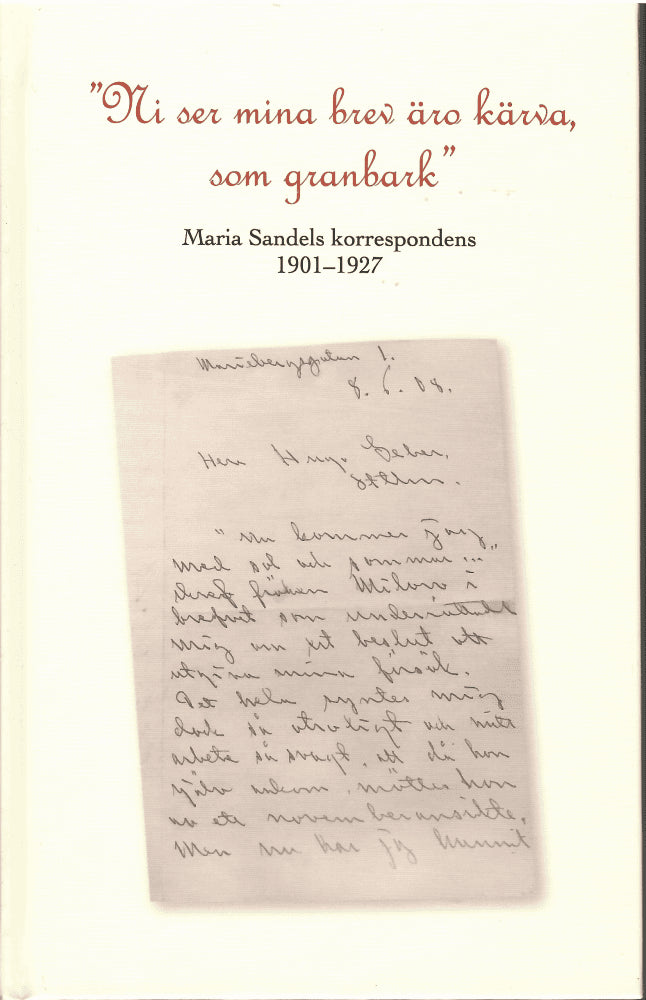 "Ni ser mina brev äro kärva,
som granbark"
Maria Sandels korrespondens
1901–1927
Mariebergsgatan 1.
8. 6. 08.
Herr Hugo Geber,
Sthlm.
"nu kommer jag
med sol och sommar ..."
skref fröken Milow i
brefvet som underrättade
mig om ert beslut att
utgifva mina försök.
Det hela syntes mig
dock så otroligt och mitt
arbete så svagt, att då hon
själv ankom, möttes hon
av ett novemberansikte.
Men nu har jag hunnit